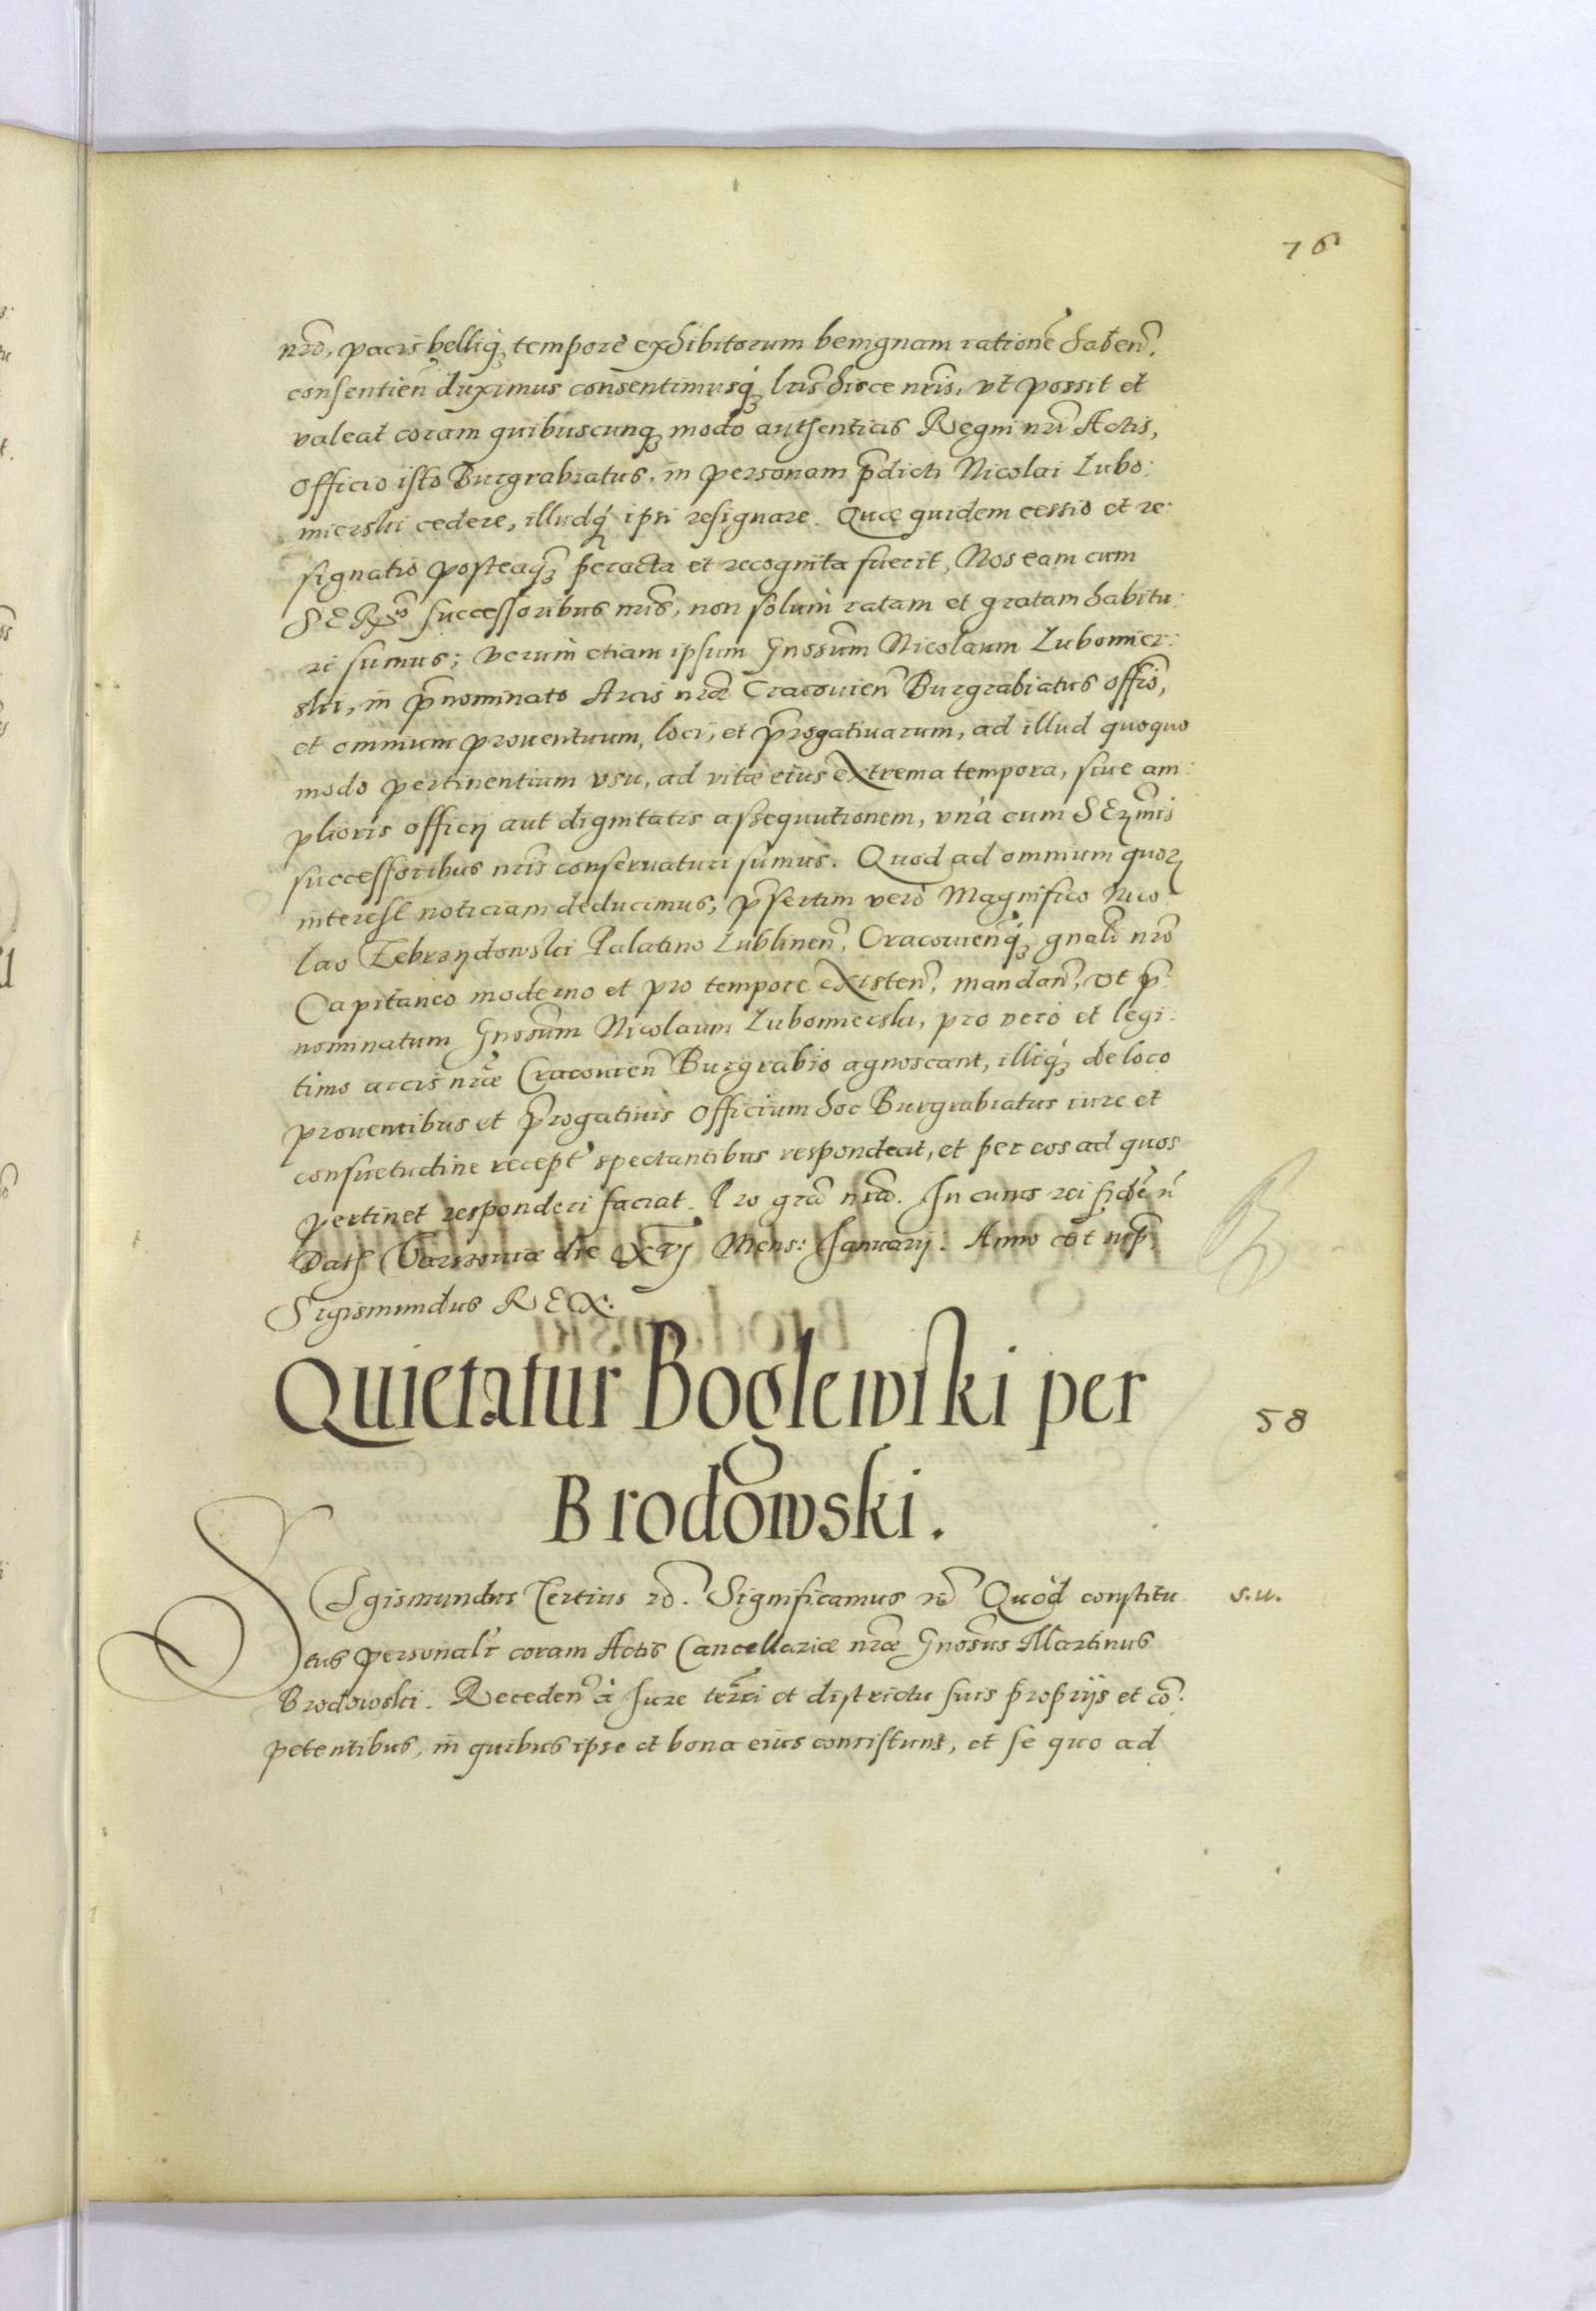 76
nrõ, pacis belliq; tempore exhibitorum benignam rationẽ habeñ,
consentieñ duximus consentimusq; lris hisce nris, vt possit et
valeat coram quibuscunq; modo authenticis Regni nri Actis,
officio isto Burgrabiatus, in personam p̃dicti Nicolai Lubo:
mierski cedere, illudq; ipsi resignare. Quæ quidem cessio et re:
signatio posteaq; peracta et recognita fuerit, Nos eam cum
successoribus nris, non solum ratam et gratam habitu:
ri sumus; verum etiam ipsum Gnosum Nicolaum Lubomier:
ski, in p̃nominato Arcis nræ Cracouieñ Burgrabiatus offio,
et omnium prouentuum, loci, et p̃rogatiuarum, ad illud quoquo
modo pertinentium vsu, ad vitæ eius extrema tempora, siue am:
plioris officij aut dignitatis assequutionem, vnà cum SErmis
successoribus nris conseruaturi sumus. Quod ad omnium quorꝝ
interest noticiam deducimus, p̃sertim verò Magnifico Nico
lao Zebrzydowski Palatino Lublineñ, Cracouieñq; gnali nrõ
Capitaneo moderno et pro tempore existeñ, mandañ, vt p̃
nominatum Gnosum Nicolaum Lubomierski, pro vero et legi:
timo arcis nræ Cracouieñ Burgrabio agnoscant, illiq; de loco
prouentibus et p̃rogatiuis officium hoc Burgrabiatus iure et
consuetudine recept' spectantibus respondeat, et per eos ad quos
pertinet responderi faciat. Pro grã nrã. In cuius rei fidẽ ñ
Dat Varsouiæ die XVj Mens: Januarij. Anno vt sup̃
Sigismundus REX.
Quietatur Boglewski per
58
Brodowski.
SIgismundus Tertius Significamus Quòd constitu
s.u.
tus personalr coram Actis Cancellariæ nræ Gnosus Martinus
Brodowski. Recedeñ à Jure terri et districtu suis proprijs et cõ:
petentibus, in quibus ipse et bona eius consistunt, et se quo ad